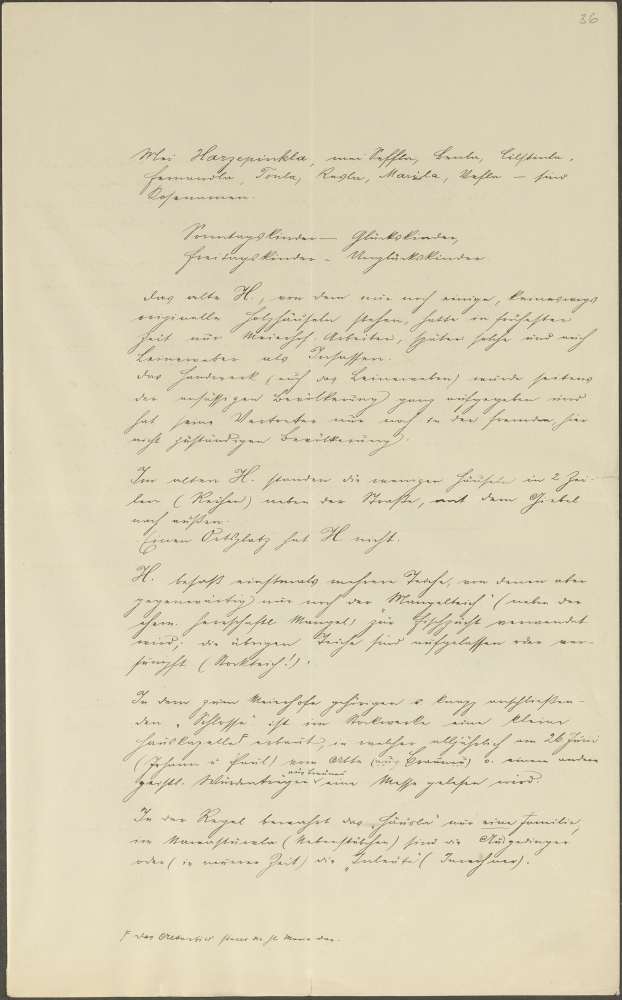 36
Mei Harzepinkla, mei Seffla, Benla,
Fernandla, Tonla, Resla, Marila, Vefla – sind
Kosenamen.
Sonntagskinder – Glückskinder,
Freitagskinder – Unglückskinder.
Das alte H., von dem nur noch einige, keineswegs
originelle Holzhäuseln stehen, hatte in frühester
Zeit nur Meierhof-Arbeiter, später solche und auch
Leineweber als Insassen.
Das Handwerk (auch das Leineweben) wurde seitens
der ansässigen Bevölkerung ganz aufgegeben und
hat seine Vertreter nur noch in der fremden, hier
nicht zuständigen Bevölkerung.
Im alten H. standen die wenigen Häuseln in 2 Zei-
len (Reihen) neben der Straße, mit dem Giebel
nach außen.
Einen Ortsplatz hat H. nicht.
H. besaß einstmals mehrere Teiche, von denen aber
gegenwärtig nur noch der "Mangelteich" (neben der
ehem. herrschaftl. Mangel) zur Fischzucht verwendet
wird; die übrigen Teiche sind aufgelassen oder ver-
sumpft (Bockteich!).
In dem zum Meierhofe gehörigen u. knapp anschließen-
den "Schlosse" ist im Stockwerke eine kleine
Hauskapelle erbaut, in welcher alljährlich am 26. Juni
(Johann u. Paul) vom Abte (aus Braunau) o. einem andern
geistl. Würdenträger aus Braunau eine Messe gelesen wird.
In der Regel bewohnt das "Häusla" nur eine Familie,
im (Nebenstübchen) sind die Ausgedinger
oder (in neuerer Zeit) die "Inleute" (Inwohner).
Das Altarbild stellt die hl. Maria dar.